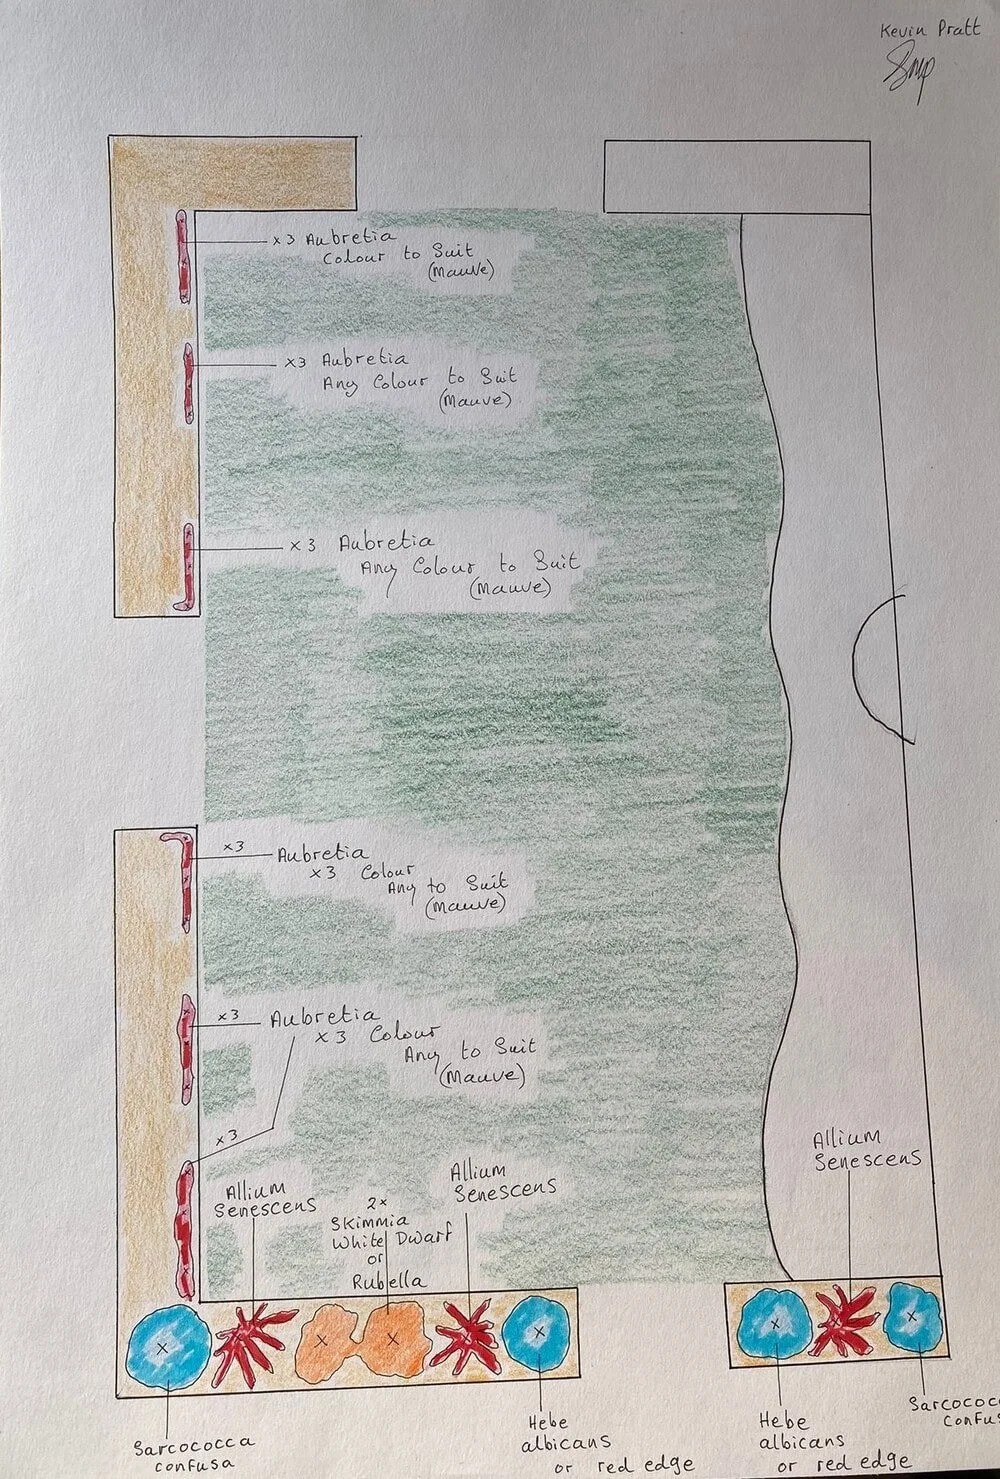 Kevin Pratt
x3 Aubretia
Colour to Suit
(Mauve)
x3 Aubretia
Any Colour to Suit
(Mauve)
x3 Aubretia
Any Colour to Suit
(Mauve)
x3
Aubretia
x3 Colour
Any to Suit
(Mauve)
x3
Aubretia
x3 Colour
Any to Suit
(Mauve)
x3
Allium
Senescens
2x
Skimmia
White Dwarf
or
Rubella
Allium
Senescens
Allium
Senescens
Sarcococca
confusa
Hebe
albicans
or red edge
Hebe
albicans
or red edge